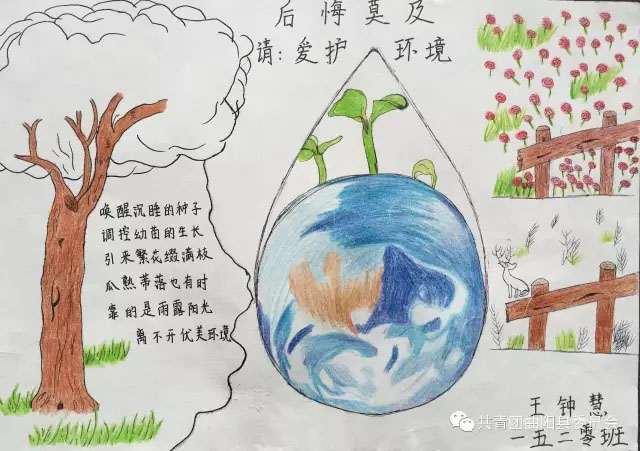 后悔莫及
请:爱护 环境
唤醒沉睡的种子
调控幼苗的生长
引来繁花缀满枝
瓜熟蒂落也有时
靠的是雨露阳光
离不开优美环境
王钟慧
一五二零班
共青团曲阳县委员会